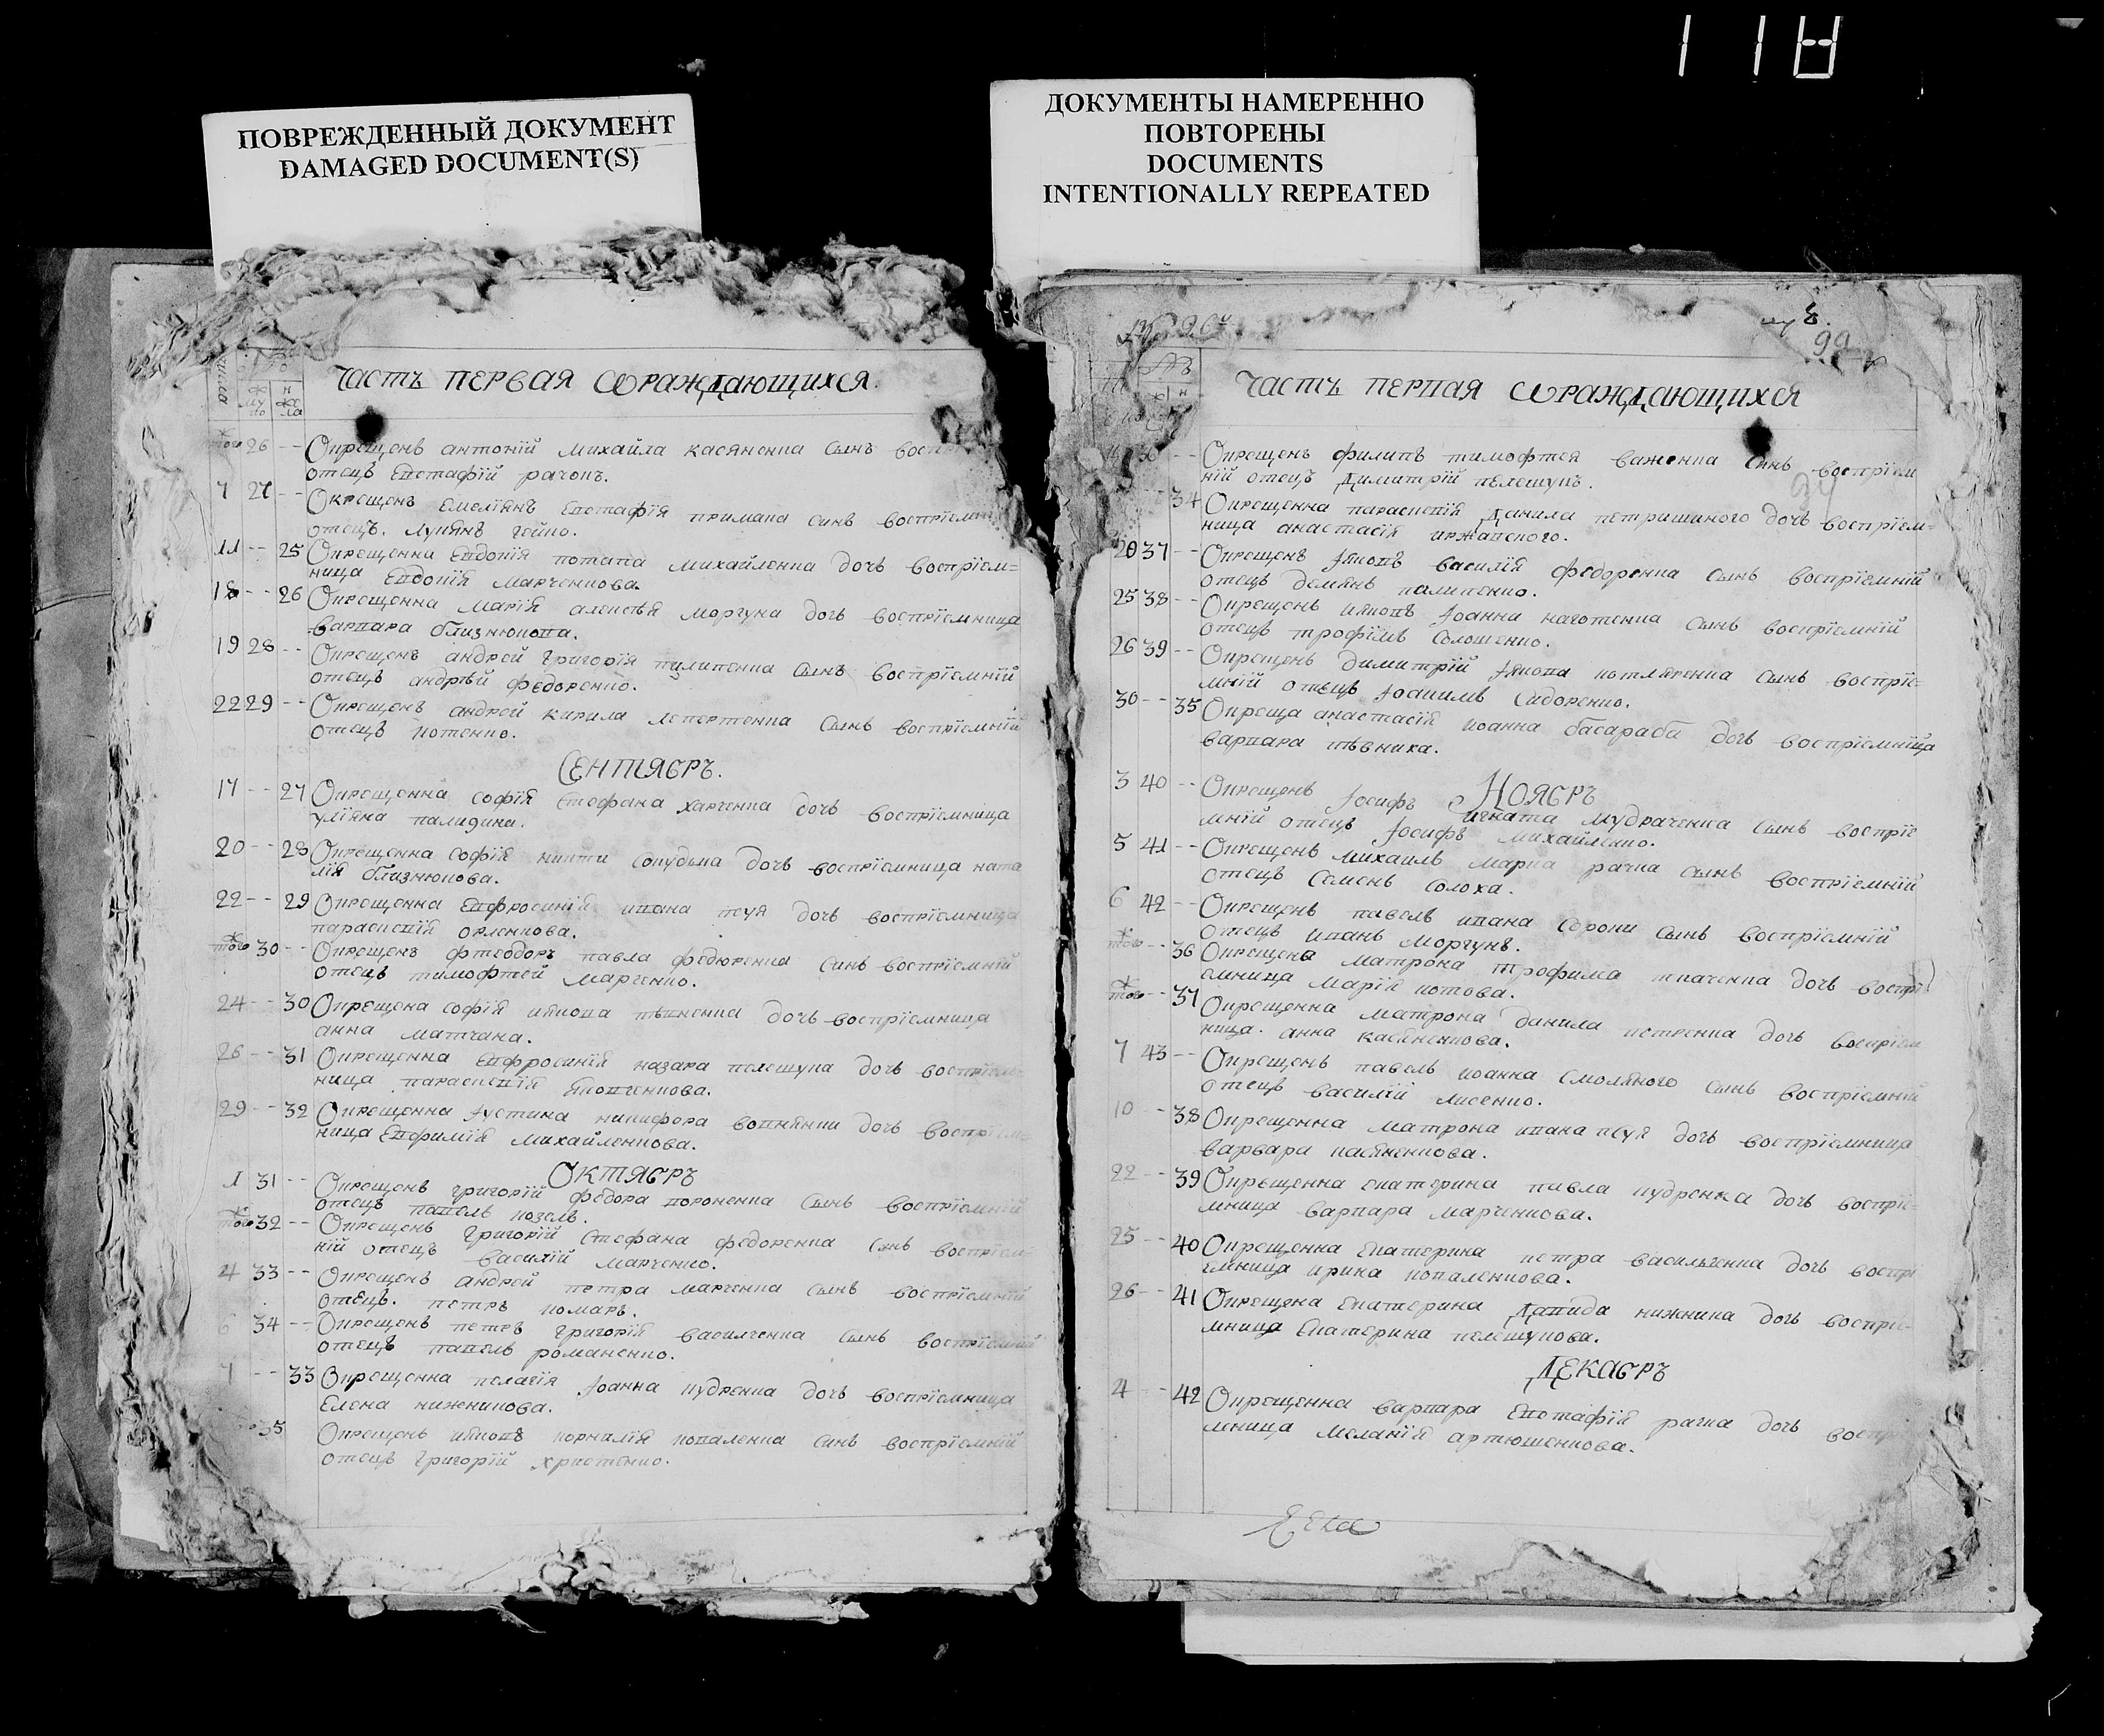 118
ПОВРЕЖДЕННЫЙ ДОКУМЕНТ
DAMAGED DOCUMENT(S)
ДОКУМЕНТЫ НАМЕРЕННО
ПОВТОРЕНЫ
DOCUMENTS
INTENTIONALLY REPEATED
числа
му
же
ла
Часть первая о раждающихся.
того 26 -- Окрещенъ антоній михайла касяненка сынъ
отецъ Евстафій рачокъ.
7 27 -- Окрещенъ Емеліянъ Евстафія примака синъ воспріемній
отецъ. лукянъ гейко.
11 -- 25 Окрещенна Евдокія потапа михайленка дочь воспріем=
ница Евдокія марченкова.
18 -- 26 Окрещенна марія алексѣя моргуна дочь воспріемница
варвара близнюкова.
19 28 -- Окрещенъ андрей григорія пилипенка сынъ воспріемній
отецъ андрѣй федоренко.
22 29 -- Окрещенъ андрей кирила лепертенка сынъ воспріемній
отецъ котенко.
Сентябрь.
17 -- 27 Окрещенна софія стефана харченка дочь воспріемница
уліяна
20 -- 28 Окрещенна софія никити дочь воспріемница ната
лія близнюкова.
22 -- 29 Окрещенна Евфросинія ивана псуя дочь воспріемница
параскевія орленкова.
того 30 -- Окрещенъ фтеодоръ павла федюренка синъ воспріемній
отецъ тимофтей марченко.
24 -- 30 Окрещена софія иякова пѣвненка дочь воспріемница
анна матчана.
26 -- 31 Окрещенна Евфросинія назара пелешука дочь воспріем=
ница параскевія яковченкова.
29 -- 32 Окрещенна Iустина никифора вовнянки дочь
ница Евфимія михайленкова.
Октябрь
1 31 -- Окрещенъ григорій федора вороненка сынъ воспріемній
отецъ павелъ козелъ.
того 32 -- Окрещенъ григорій стефана федоренка синъ воспріем=
ній отецъ василій марченко.
4 33 -- Окрещенъ андрей петра марченка сынъ воспріемній
отецъ. петръ комаръ.
6 34 -- Окрещенъ петръ григорія василченка сынъ воспріемній
отецъ павелъ романенко.
7 -- 33 Окрещенна пелагія Iоанна кудренка дочь воспріемница
Елена нижникова.
35 Окрещенъ ияковъ корнилія коваленка синъ воспріемній
отецъ григорій христенко.
99
Часть первая о раждающихся
36 -- Окрещенъ филипъ тимофтея важенка синъ воспріем
ній отецъ димитрій пелешукъ.
34 Окрещенна параскевія данила петришиного дочь воспріем=
ница анастасія иржавского.
20 37 -- Окрещенъ Iяковъ василія федоренка сынъ воспріемній
отецъ демянъ палипенко.
25 38 -- Окрещенъ ияковъ Iоанна наготенка сынъ воспріемній
отецъ трофимъ солошенко.
26 39 -- Окрещенъ димитрій Iякова котляренка сынъ воспріе=
мній отецъ Iоакимъ сидоренко.
30 -- 35 Окреща анастасія иоанна басараба дочь воспріемница
варвара пѣвника.
Ноябрь
3 40 -- Окрещенъ Iосифъ игната мудраченка сынъ воспріе
мній отецъ Iосифъ михайленко.
5 41 -- Окрещенъ михаилъ марка рачка сынъ воспріемній
отецъ семенъ солоха.
6 42 -- Окрещенъ павелъ ивана сороки сынъ воспріемній
отецъ иванъ моргунъ.
того -- 36 Окрещена матрона трофима ткаченка дочь воспрі
емница марія котова.
того -- 37 Окрещенна матрона данила петренка дочь воспріем
ница. анна касяненкова.
7 43 -- Окрещенъ павелъ иоанна смоляного сынъ воспріемній
отецъ василій лисенко.
10 -- 38 Окрещенна матрона ивана псуя дочь воспріемница
варвара касяненкова.
22 -- 39 Окрещенна екатерина павла кудренка дочь воспріе=
мница варвара марченкова.
25 -- 40 Окрещенна екатерина петра василченка дочь воспрі
емница ирина коваленкова.
26 -- 41 Окрещена екатерина давида нижника дочь воспріе=
мница Екатерина пелешукова.
Декабрь
4 -- 42 Окрещенна варвара Евстафія рачка дочь
мница меланія артюшенкова.